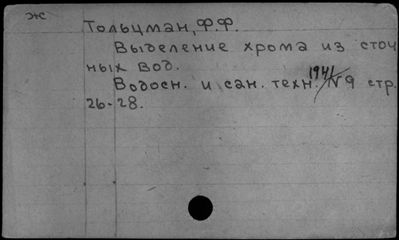 Ж
Тольцман, Ф.Ф.
Выделение хрома из сточ
ных вод.
Водосн. и сан. техн. 1941/№9 стр.
26-28.